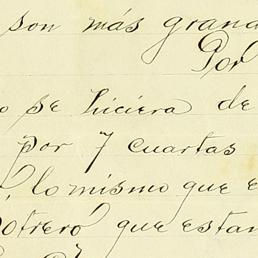 son más grand
Por
o se hiciera de
por 7 cuartas
, lo mismo que e
potrero que estan